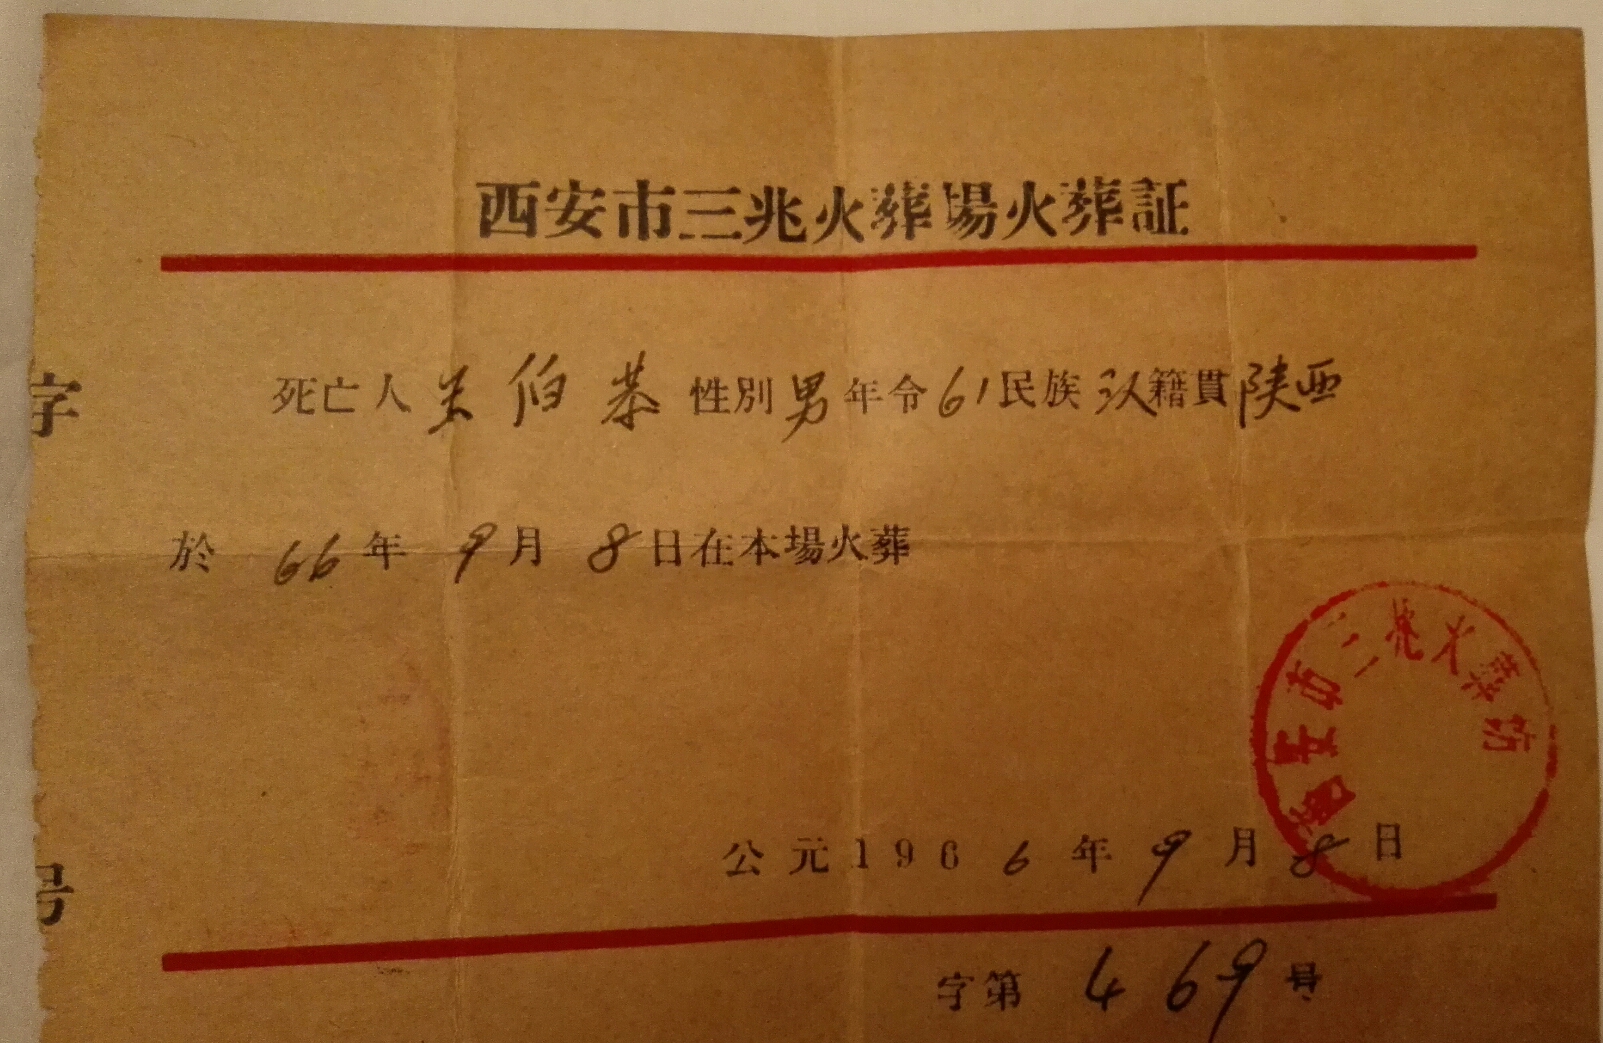 西安市三兆火葬場火葬証
死亡人 伯恭 性別 男 年令 61 民族 汉 籍貫 陕西
於 66 年 9 月 8 日在本場火葬
西安市三兆火葬场
公元196 6 年 9 月 8 日
字第 469 号
字
号